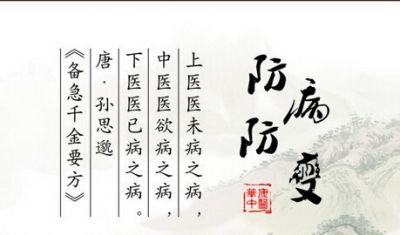 防病
防變
醫
華中
上医医未病之病，
中医医欲病之病，
下医医已病之病。
唐·孙思邈
《备急千金要方》